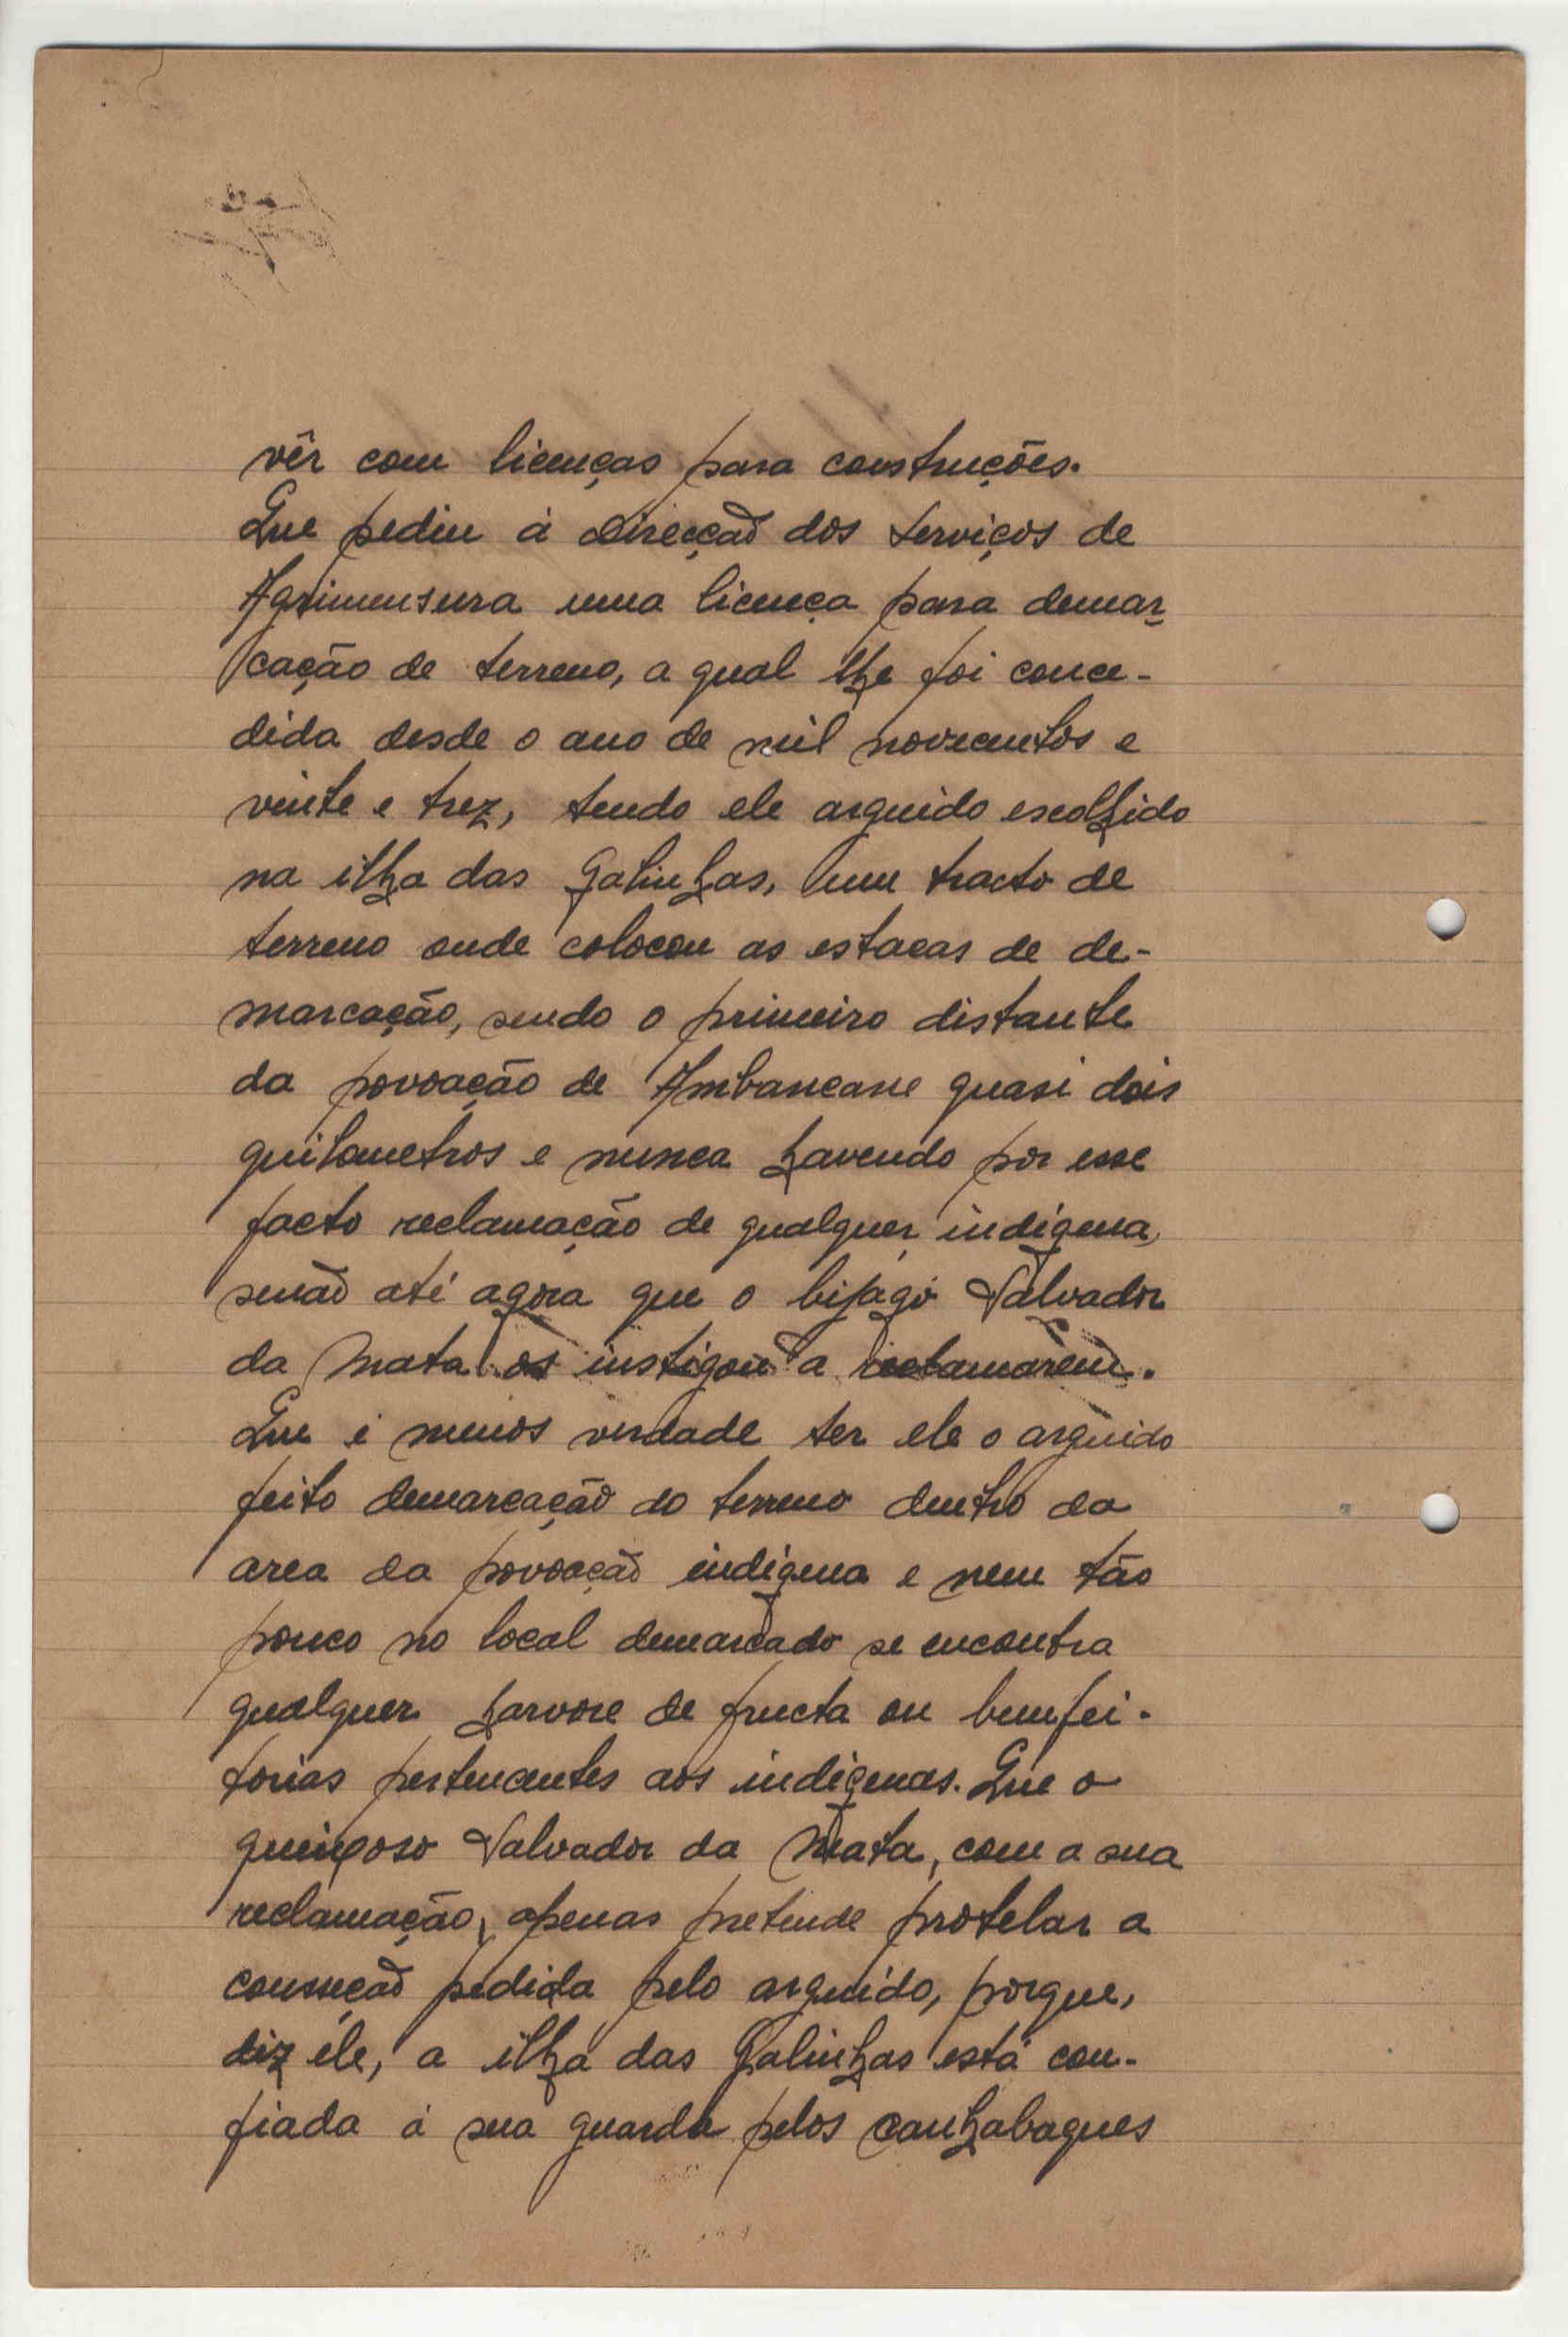 vêr com licenças para construções.
Que pediu á Direcção dos Serviços de
Agrimensura uma licença para demar-
cação de terreno, a qual lhe foi conce-
dida desde o ano de mil novecentos e
vinte e trez, tendo ele arguido escolhido
na ilha das Galinhas, um tracto de
terreno onde colocou as estacas de de-
marcação, sendo o primeiro distante
da povoação de Ambancane quasi dois
quilometros e nunca havendo por esse
facto reclamação de qualquer indigena,
senão até agora que o bijagó Salvador
da Mata os instigou a reclamarem.
Que é menos verdade ter ele o arguido
feito demarcação do terreno dentro da
area da povoação indigena e nem tão
pouco no local demarcado se encontra
qualquer harvore de fructa ou bemfei-
torias pertencentes aos indigenas. Que o
queixoso Salvador da Mata, com a sua
reclamação, apenas pretende protelar a
conseção pedida pelo arguido, porque,
diz ele, a ilha das Galinhas está con-
fiada á sua guarda pelos canhabaques